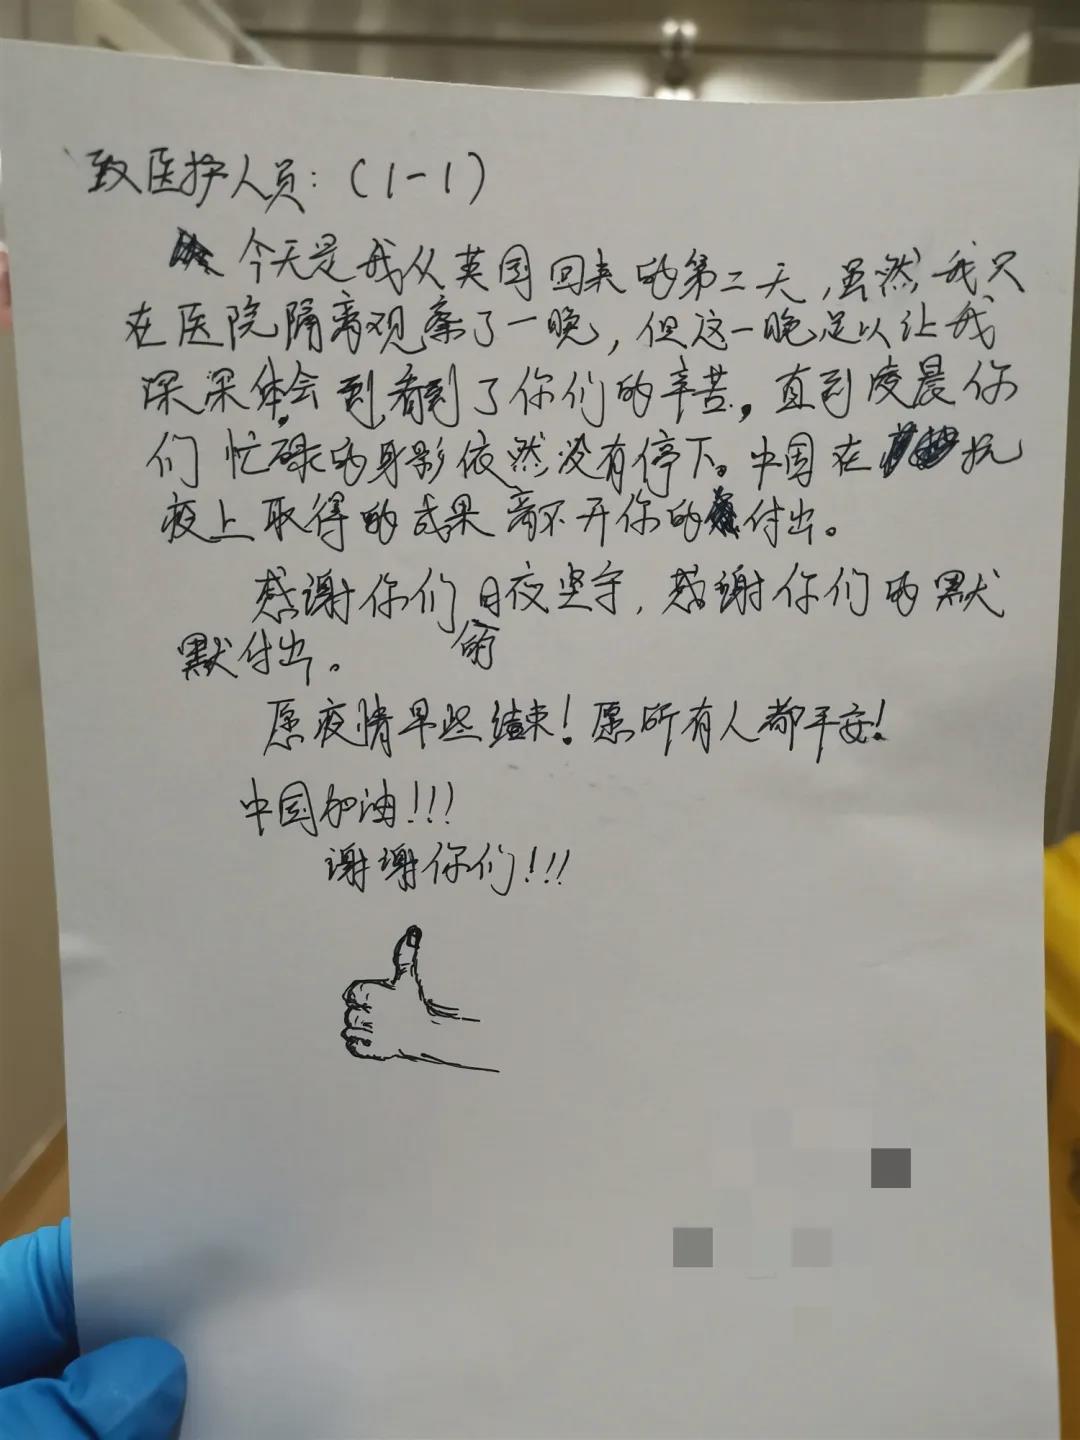 致医护人员：(1-1)
今天是我从英国回来的第二天，虽然我只
在医院隔离观察了一晚，但这一晚足以让我
深深体会到，看到了你们的辛苦，直到凌晨你
们忙碌的身影依然没有停下。中国在抗
疫上取得的成果离不开你的付出。
感谢你们日夜坚守，感谢你们的默
默付出。 的
愿疫情早些结束！愿所有人都平安！
中国加油！！！
谢谢你们！！！